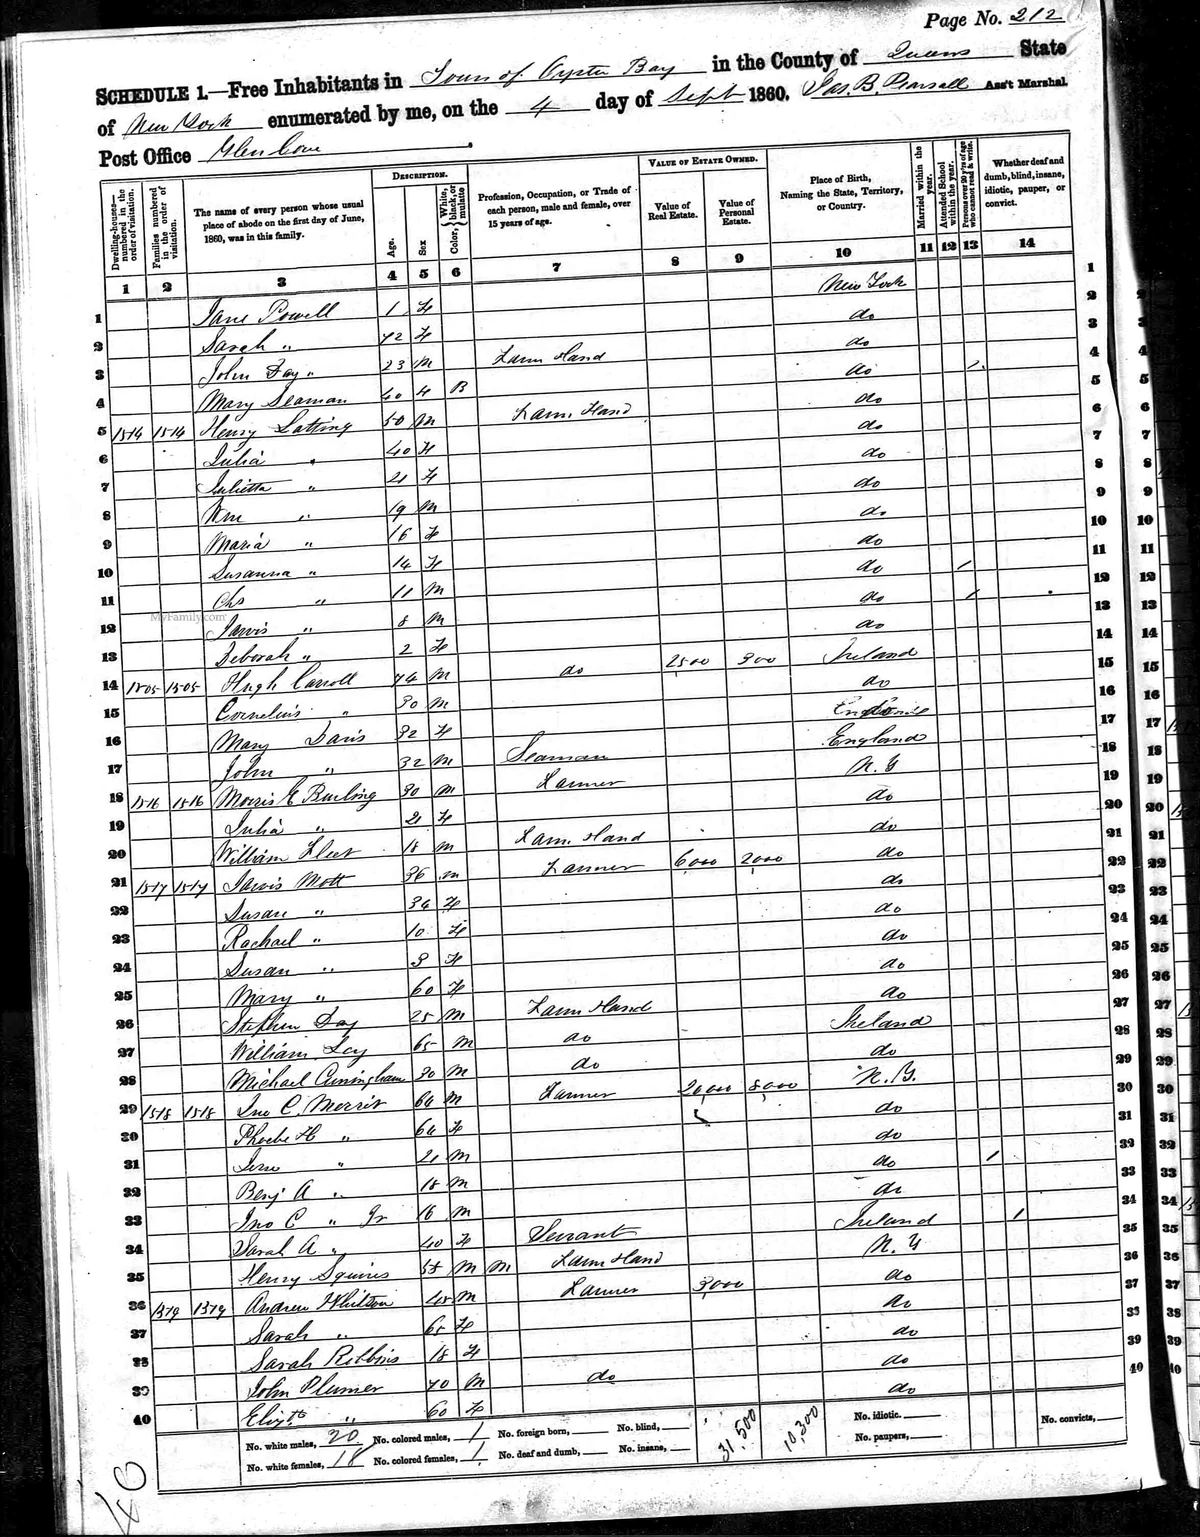 Page No. 212
SCHEDULE 1.—Free Inhabitants in Town of Oyster Bay in the County of Queens State
of New York enumerated by me, on the 4 day of Sept 1860. Jas. B. Pearsall Ass't Marshal.
Post Office Glen Cove
Dwelling-houses—numbered in the order of visitation.
Families numbered in the order of visitation.
The name of every person whose usual place of abode on the first day of June, 1860, was in this family.
DESCRIPTION.
Age.
Sex
Color, { White, black, or mulatto
Profession, Occupation, or Trade of each person, male and female, over 15 years of age.
VALUE OF ESTATE OWNED.
Value of Real Estate.
Value of Personal Estate.
Place of Birth, Naming the State, Territory, or Country.
Married within the year.
Attended School within the year.
Persons over 20 y'rs of age who cannot read & write.
Whether deaf and dumb, blind, insane, idiotic, pauper, or convict.
1 2 3 4 5 6 7 8 9 10 11 12 13 14
1 Jane Powell 1 F New York
2 Sarah " 42 F do
3 John Fay " 23 M Farm Hand do
4 Mary Seaman 40 F B do
5 1514 1514 Henry Latting 50 M Farm Hand do
6 Julia " 40 F do
7 Julietta " 21 F do
8 Wm " 19 M do
9 Maria " 16 F do
10 Susanna " 14 F do
11 Chs " 11 M do
12 Jarvis " 8 M do
13 Deborah " 2 F do
14 1505 1505 Hugh Carroll 44 M do 2500 300 Ireland
15 Cornelius " 30 M do
16 Mary Davis 32 F
17 John " 32 M Seaman England
18 1516 1516 Morris E Burling 30 M Farmer N.Y
19 Julia " 21 F do
20 William Fleet 18 M Farm Hand do
21 1517 1517 Jarvis Mott 36 M Farmer 6,000 2,000 do
22 Susan " 34 F do
23 Rachael " 10 F do
24 Susan " 3 F do
25 Mary " 60 F do
26 Stephen Day 25 M Farm Hand do
27 William Loy 65 M do Ireland
28 Michael Cuningham 30 M do do
29 1518 1518 Jno C. Morris 64 M Farmer 20,000 8,000 N.Y.
30 Phoebe H " 64 F do
31 " 21 M do
32 Benj A " 18 M do
33 Jno C " Jr 16 M do
34 Sarah A " 40 F Servant Ireland
35 Henry Squires 58 M M Farm Hand N.Y
36 1319 1319 Andrew Whitson 45 M Farmer 3,000 do
37 Sarah " 65 F do
38 Sarah Robbins 18 F do
39 John Plumer 70 M do do
40 Elizth " 60 F do
No. white males, 20 No. colored males, 1 No. foreign born, No. blind, 31,500 10,300 No. idiotic. No. convicts,
No. white females, 18 No. colored females, 1. No. deaf and dumb, No. insane, No. paupers,
40
MyFamily.com